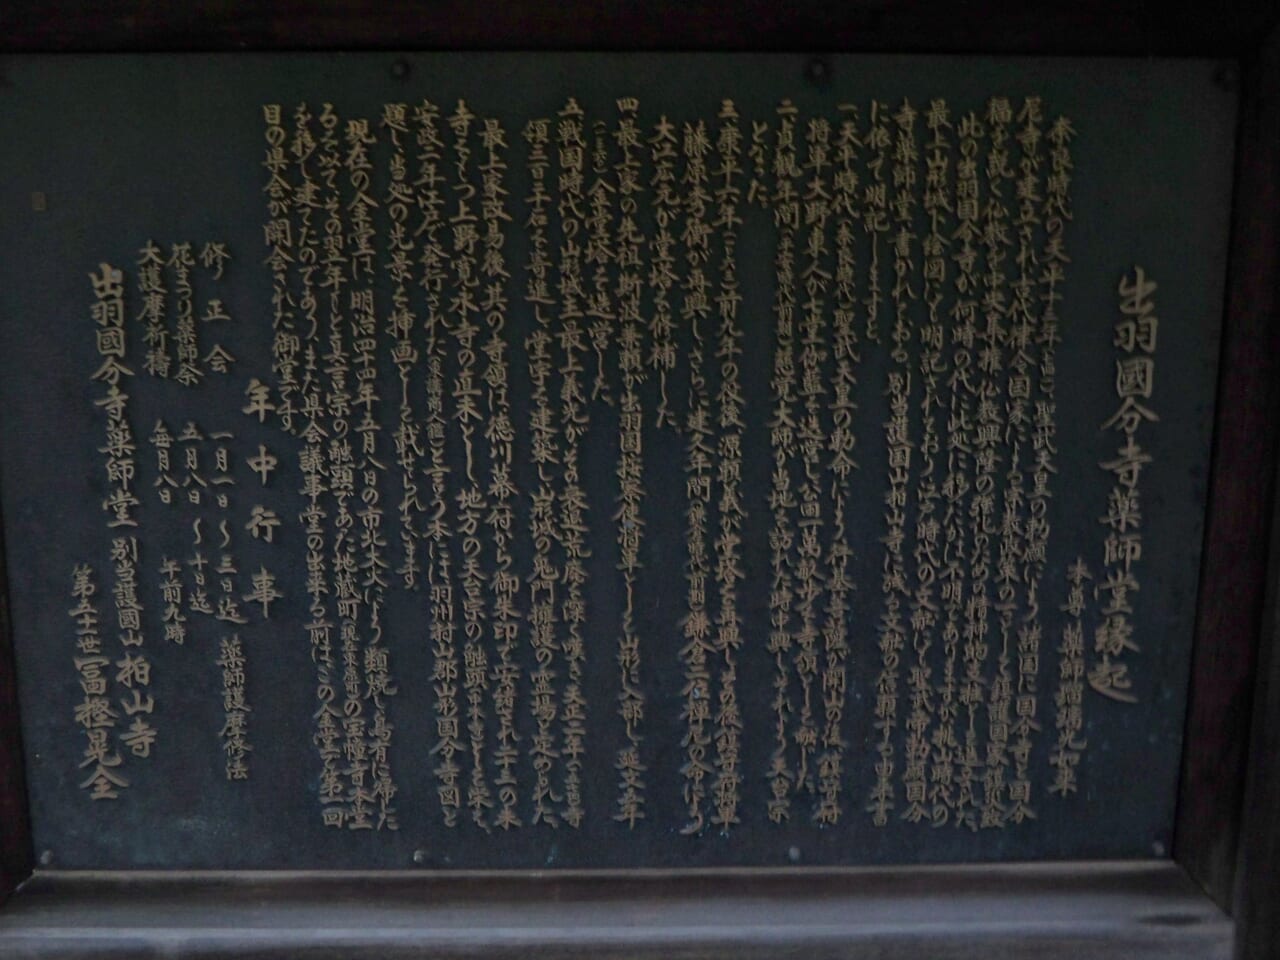 出羽國分寺薬師堂縁起
本尊 薬師瑠璃光如来
奈良時代の天平十三年 聖武天皇の勅願により諸国に国分寺と国分
尼寺が建立され古代律令国家による宗教政策の一つとして鎮護国家
福を説く仏教を
此の出羽国分寺が何時の代に此処に移ったかは不明でありますが桃山時代の
最上山形城下絵図にも明記されており江戸時代の文献にも聖武帝勅願国分
寺薬師堂と書かれおる。別当護国山柏山寺に残る文部の信頼する由来書
に依て明記しますと、
一、天平時代(奈良時代)聖武天皇の勅命により行基菩薩が開山の後鎮守府
将軍大野東人が七堂伽藍を造営し公田一萬束を寺領として献じた。
二、貞観年間(平安時代前期)慈覚大師が当地を訪れた時中興しそれより天台宗
となった
三、康平六年 前九年の役後、源頼義が堂塔を再興しその後鎮守府将軍
藤原秀衡が再興しさらに建久年間(鎌倉時代前期)鎌倉二位禅尼の命により
大江広元が堂塔を修補した。
四、最上家の先祖斯波兼頼が出羽国按察使将軍として山形に入部し、延文五年
金堂塔を造営した
五、戦国時代の山形城主最上義光がその衰退荒廃を深く嘆き天正二年 寺
領三百三十石を寄進し、堂宇を建築し山形城の鬼門擁護の霊場と定められた。
最上家改易後、其の寺領は、徳川幕府から御朱印で安堵され二十三の末
寺をもつ上野寛永寺の直末とし、地方の天台宗の触頭 として栄え、
安政二年江戸で発行された と言う本には羽州村山郡山形国分寺図と
題し当処の光景を挿画として載せられています。
現在の金堂は、明治四十四年五月八日の市北大火により類焼し烏有に帰した
るを以て、その翌年もと真言宗の触頭であった地蔵町 の宝幢寺本堂
を移し建てたのであり、また県会議事堂の出来る前はこの金堂で第一回
目の県会が開会された御堂です。
年中行事
修正会 一月一日～三日迄 薬師護摩修法
花まつり薬師祭 五月八日～十日迄
大護摩祈祷 毎月八日 午前九時
出羽國分寺薬師堂 別当護國山 柏山寺
第五十一世 冨樫晃全